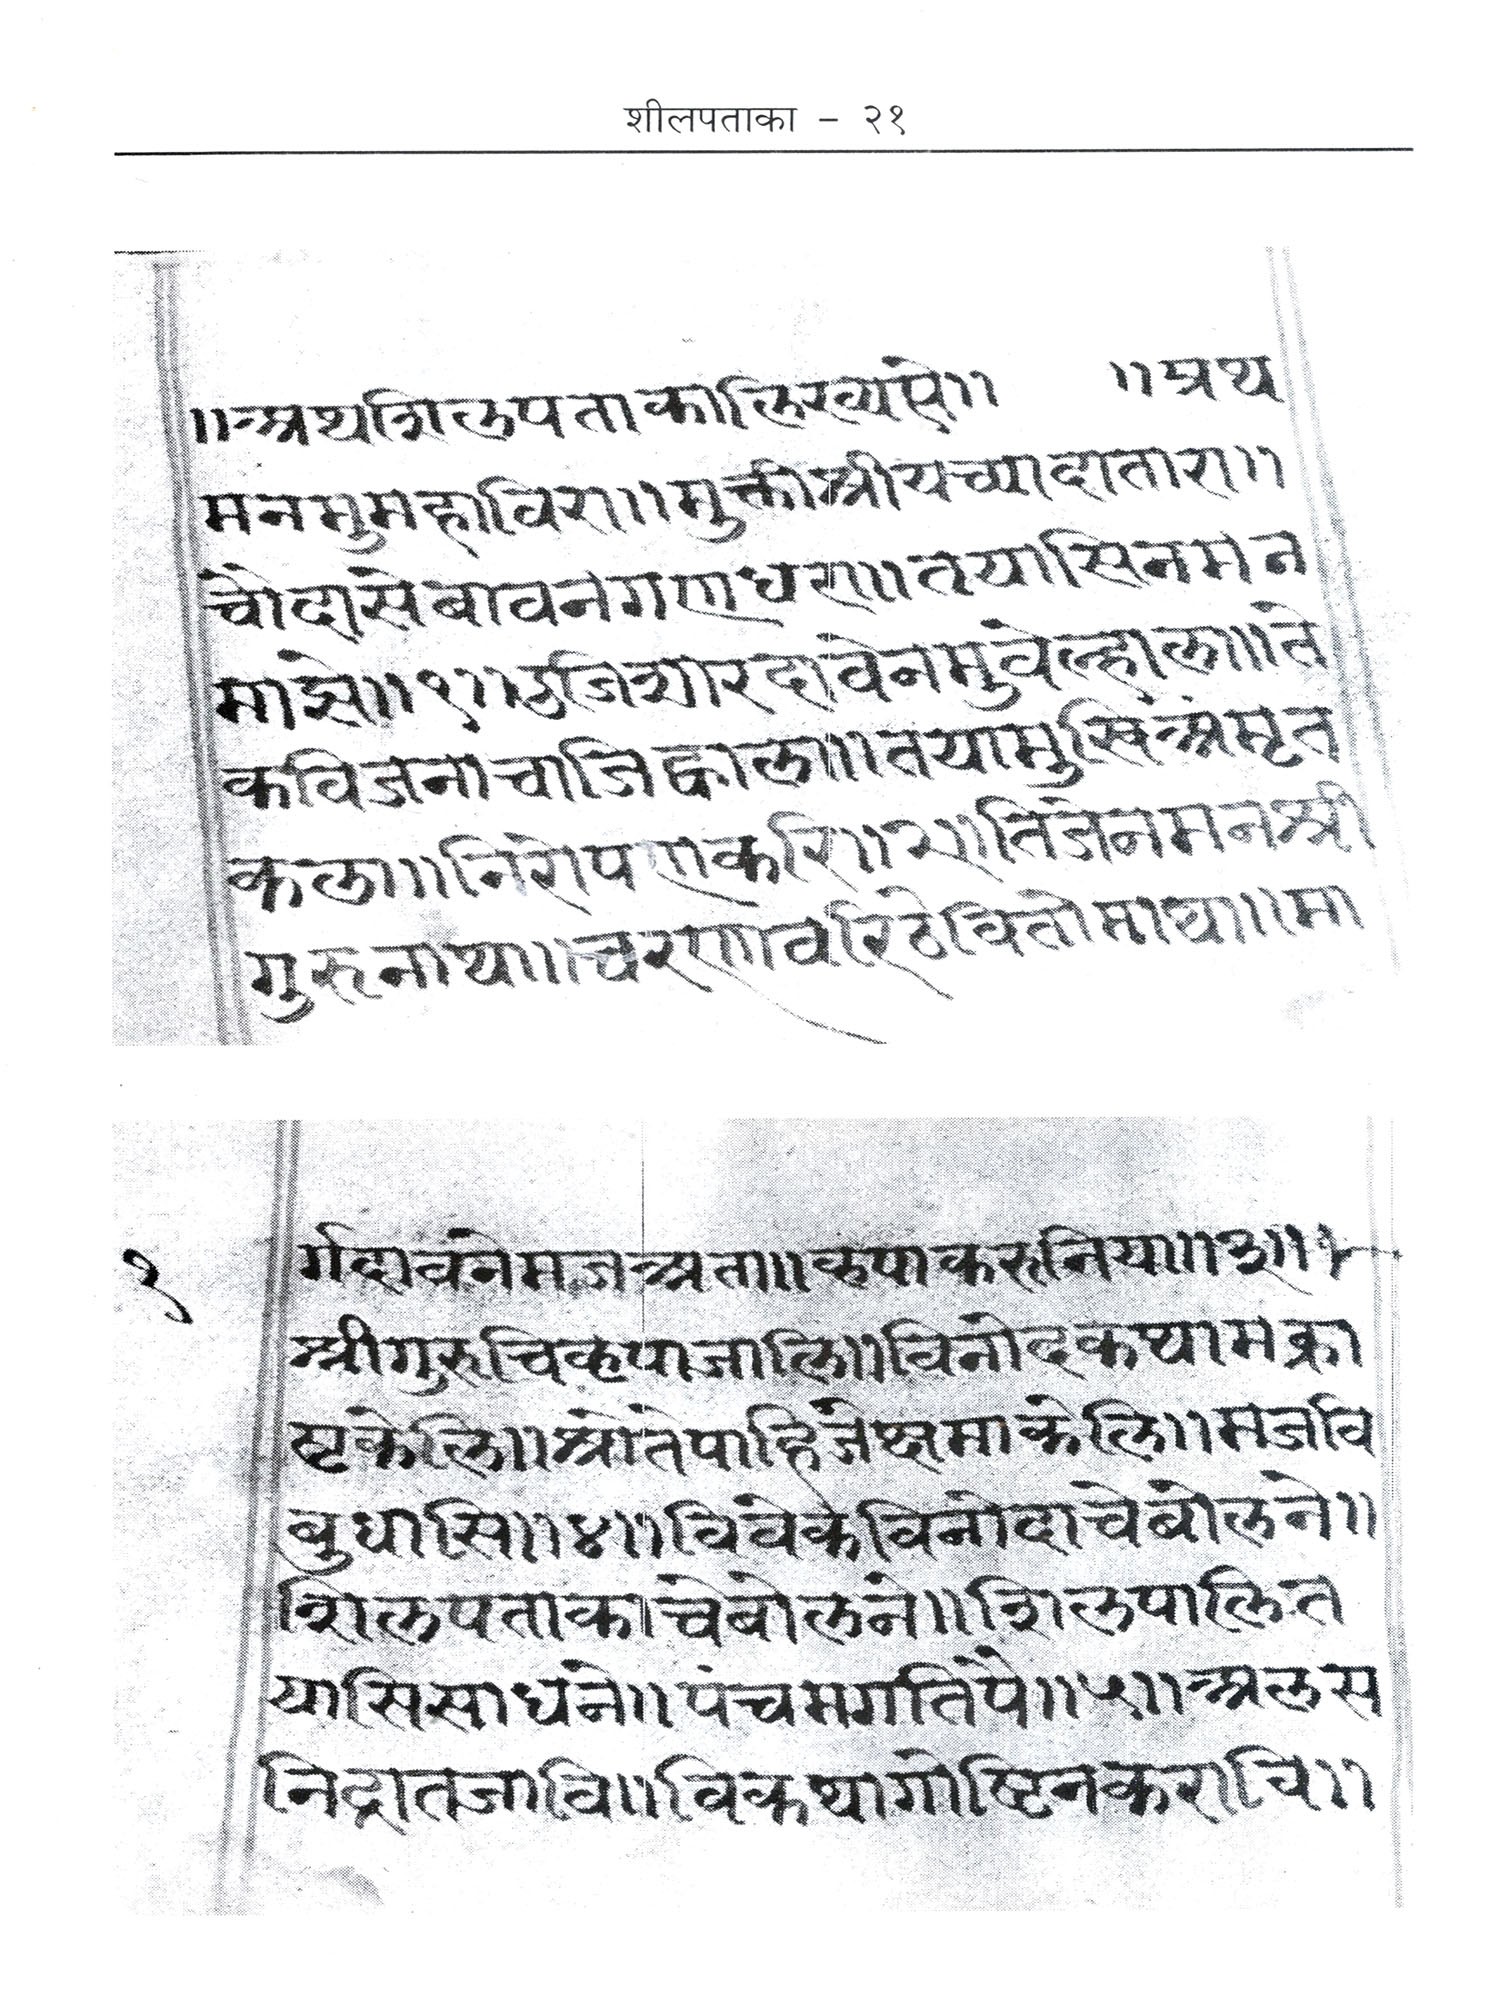 शीलपताका – २१
॥अथशिलपताकालिख्यते॥ ॥प्रथ
मनमुमहाविरा॥मुक्तीश्रीयच्यादातारा॥
चौदासेबावनगणधरा॥तयासिनमन
माझे॥१॥उजिशारदावेनमुवेल्हाला॥ते
कविजनाचाजिव्हाला॥तयामुसिंअमृत
कला॥निरोपणकरि॥२॥तिजेनमनश्री
गुरुनाथा॥चरणावरिठेवितोमाथा॥मा
र्गदावनेमजअता॥कृपाकरूनिया॥३॥
१
श्रीगुरुचिकृपाजालि॥विनोदकथामक्रा
ष्टकेलि॥श्रोतेपाहिजेक्षमाकेलि॥मजवि
बुधासि॥४॥विवेकेविनोदाचेबोलने॥
शिलपताकाचेबोलने॥शिलपालित
यासिसाधने॥पंचमगतिपै॥५॥अलस
निद्रातजावि॥विकथागोष्टिनकरावि॥